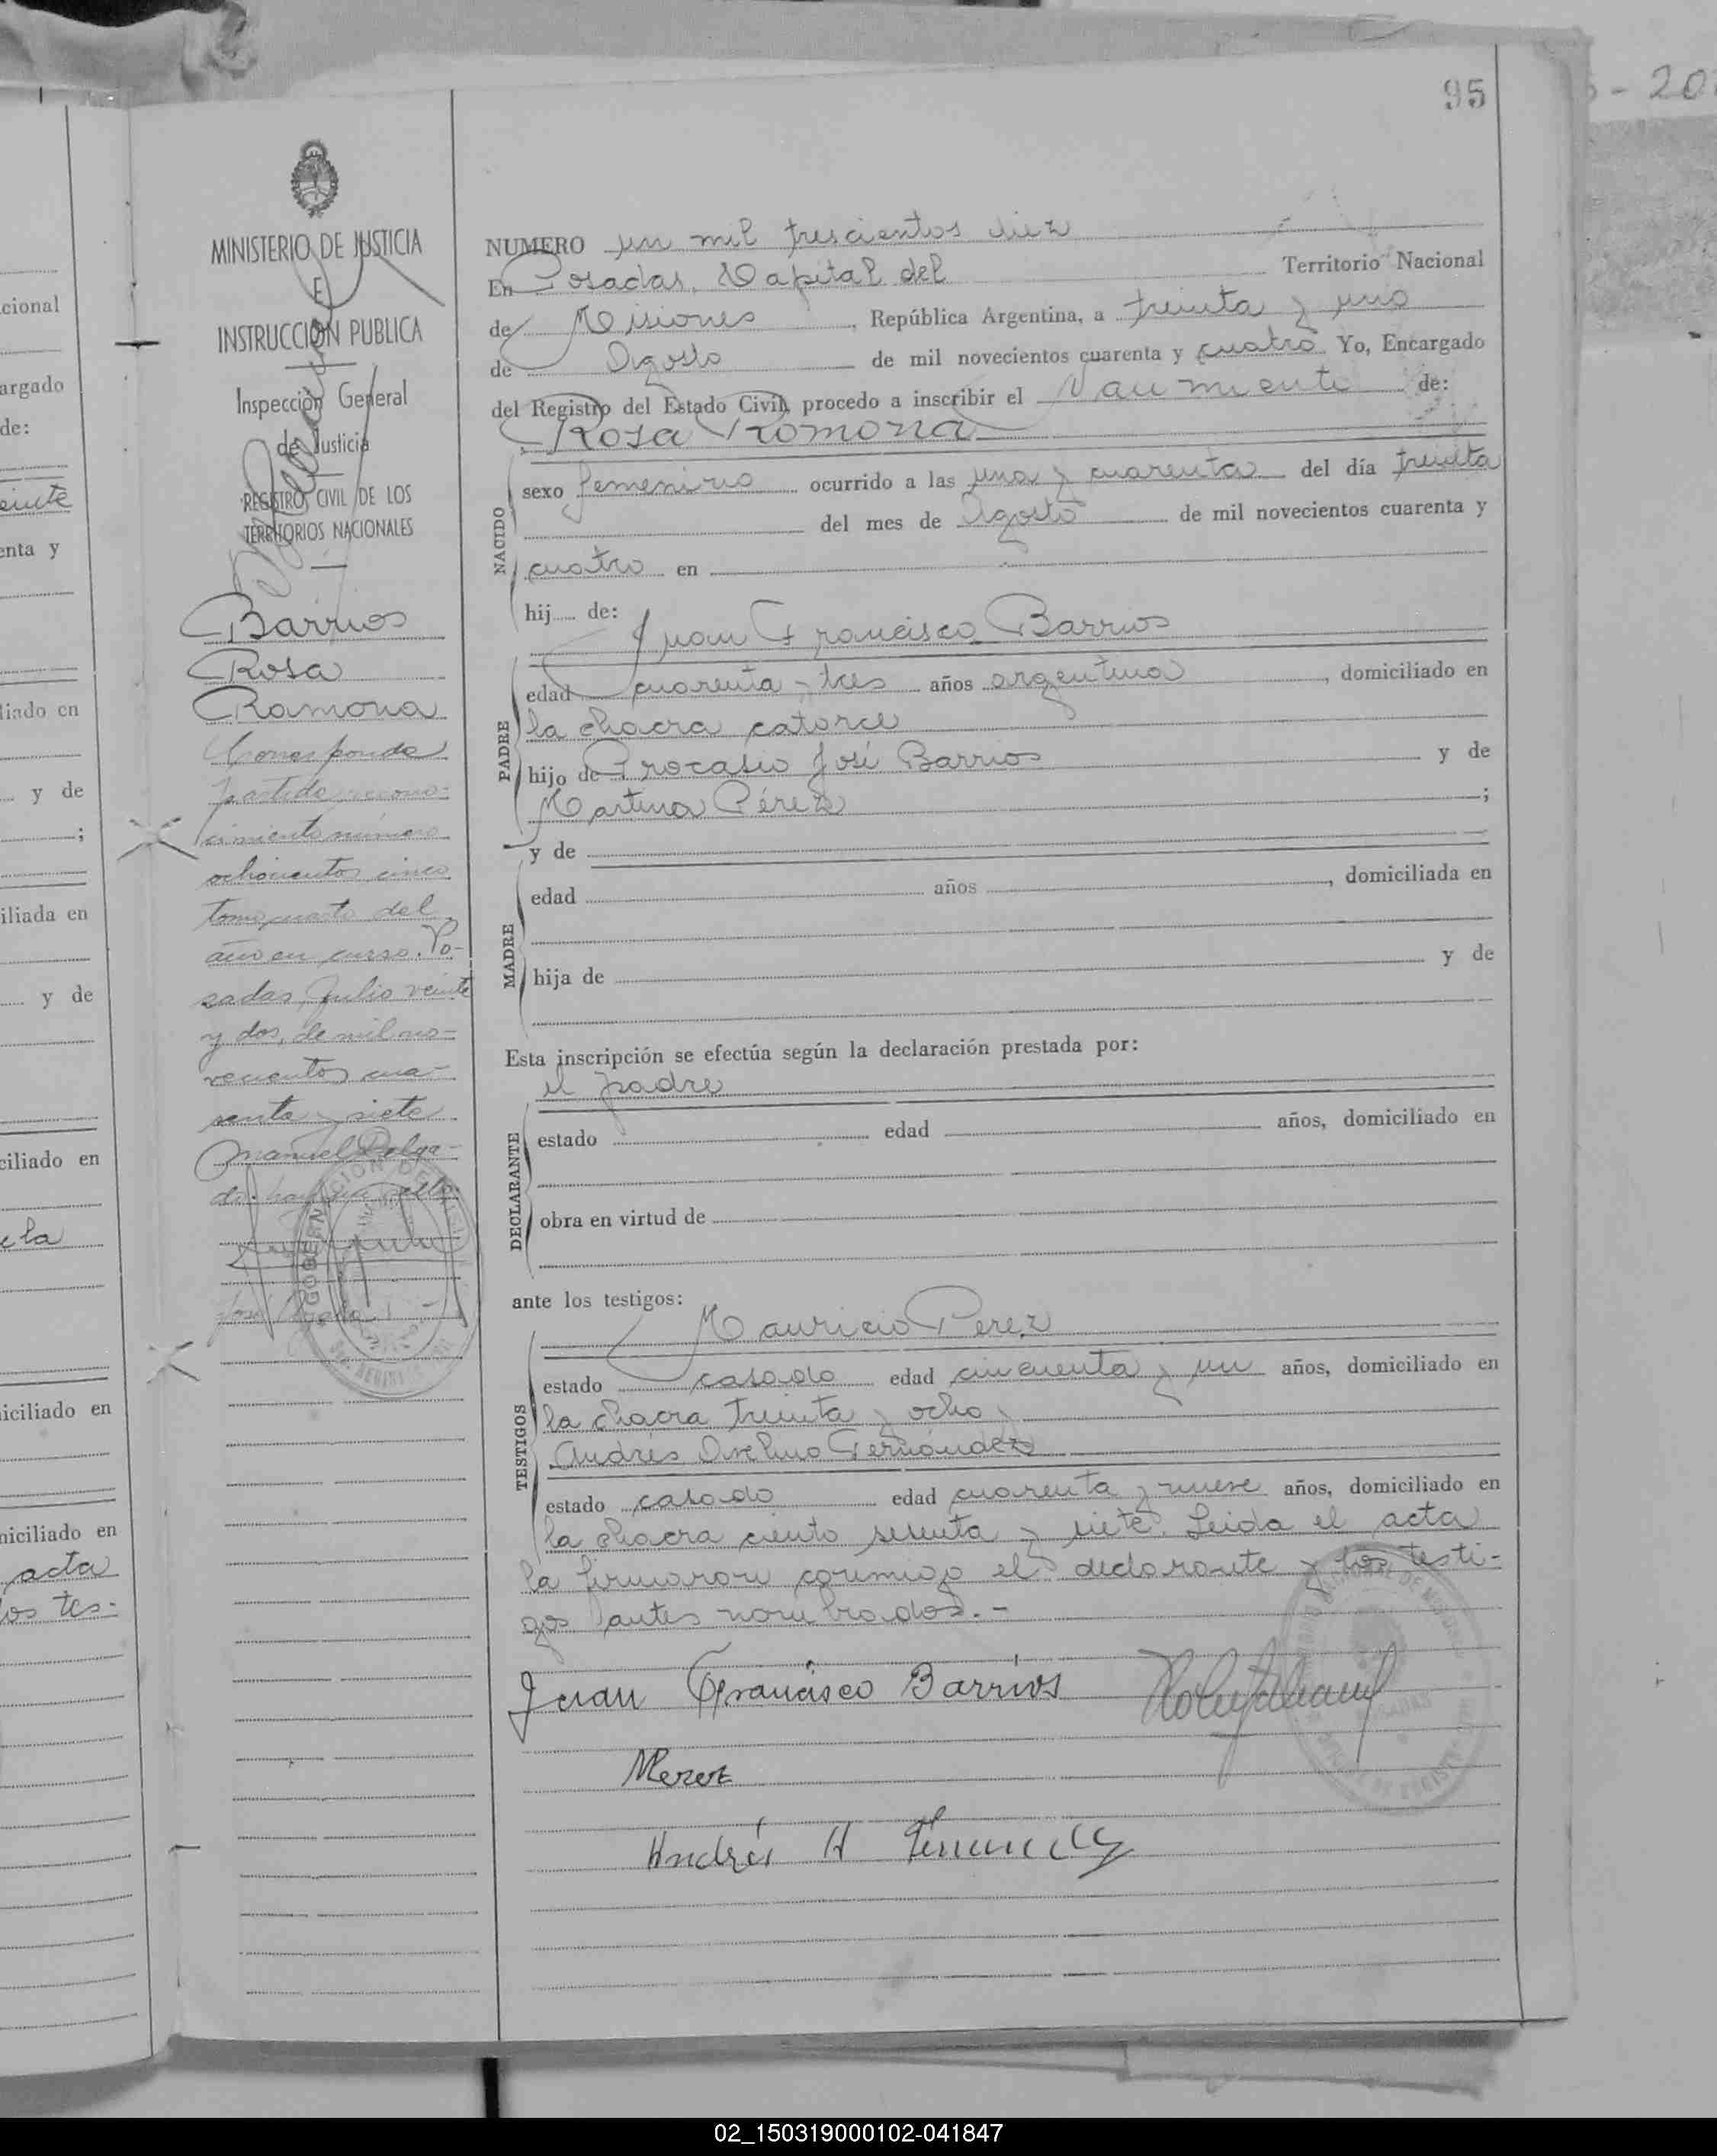 95
MINISTERIO DE JUSTICIA
E
INSTRUCCIÓN PUBLICA
Inspección General
de Justicia
REGISTRO CIVIL DE LOS
TERRITORIOS NACIONALES
Barrios
Rosa
Ramona
Corresponde
partida recono-
cimiento número
ochocientos cinco
tomo cuarto del
año en curso. Po-
sadas, Julio veinte
y dos, de mil no-
vecientos cua-
renta y siete
Manuel Delga-
do
NUMERO un mil trescientos diez
En Posadas, Capital del Territorio Nacional
de Misiones, República Argentina, a treinta y uno
de Agosto de mil novecientos cuarenta y cuatro Yo, Encargado
del Registro del Estado Civil, procedo a inscribir el Nacimiento de:
Rosa Romona
NACIDO
sexo femenino ocurrido a las una y cuarenta del día treinta
del mes de Agosto de mil novecientos cuarenta y
cuatro en
hij de:
Juan Francisco Barrios
PADRE
edad cuarenta y tres años argentino, domiciliado en
la chacra catorce
hijo de Procasio José Barrios y de
Martina Pérez;
y de
MADRE
edad años, domiciliada en
hija de y de
Esta inscripción se efectúa según la declaración prestada por:
el padre
DECLARANTE
estado edad años, domiciliado en
obra en virtud de
ante los testigos:
Mauricio Perez
TESTIGOS
estado casado edad cincuenta y un años, domiciliado en
la chacra treinta y ocho y
Andrés Avelino Fernández
estado casado edad cuarenta y nueve años, domiciliado en
la chacra ciento setenta y siete. Leida el acta
la firmaron conmigo el declarante y los testi-
gos antes nombrados.-
Juan Francisco Barrios
MPerez
Andrés A Fernandez
cional
argado
de:
einte
enta y
liado en
y de
;
iliada en
y de
ciliado en
e la
iciliado en
niciliado en
acta
los tes-
02_150319000102-041847